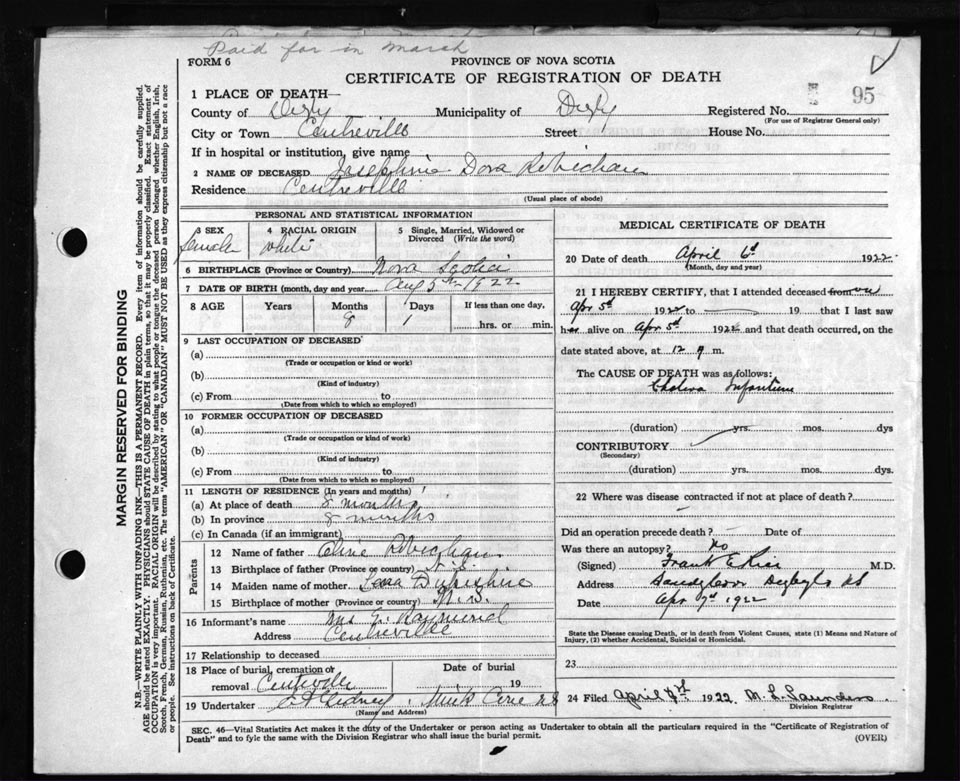 Paid for in March
FORM 6
PROVINCE OF NOVA SCOTIA
CERTIFICATE OF REGISTRATION OF DEATH
95
1 PLACE OF DEATH—
County of Digby Municipality of Digby Registered No.
(For use of Registrar General only)
City or Town Centreville Street House No.
If in hospital or institution, give name
2 NAME OF DECEASED Josephine Dora Robichau
Residence Centreville
(Usual place of abode)
PERSONAL AND STATISTICAL INFORMATION
3 SEX 4 RACIAL ORIGIN 5 Single, Married, Widowed or
Divorced (Write the word)
female white
6 BIRTHPLACE (Province or Country) Nova Scotia
7 DATE OF BIRTH (month, day and year Aug 5th 1922
8 AGE Years Months Days If less than one day,
8 1 hrs. or min.
9 LAST OCCUPATION OF DECEASED
(a)
(Trade or occupation or kind or work)
(b)
(Kind of industry)
(c) From to
(Date from which to which so employed)
10 FORMER OCCUPATION OF DECEASED
(a)
(Trade or occupation or kind of work)
(b)
(Kind of industry)
(c) From to
(Date from which to which so employed)
11 LENGTH OF RESIDENCE (In years and months)
(a) At place of death 8 months
(b) In province 8 months
(c) In Canada (if an immigrant)
Parents
12 Name of father Robichau
13 Birthplace of father (Province or country) N.S.
14 Maiden name of mother
15 Birthplace of mother (Province or country) N.S.
16 Informant's name Mrs
Address Centreville
17 Relationship to deceased
18 Place of burial, cremation or Date of burial
removal Centreville 19
19 Undertaker
(Name and Address)
MEDICAL CERTIFICATE OF DEATH
20 Date of death April 6th 1922
(Month, day and year)
21 I HEREBY CERTIFY, that I attended deceased from on
Apr 5th 1922 to 19 that I last saw
her alive on Apr 5th 1922 and that death occurred, on the
date stated above, at 12 m.
The CAUSE OF DEATH was as follows:
Cholera Infantum
(duration) yrs. mos. dys
CONTRIBUTORY
(Secondary)
(duration) yrs. mos. dys.
22 Where was disease contracted if not at place of death?
Did an operation precede death? Date of
Was there an autopsy? No
(Signed) Frank E Rice M.D.
Address Sandy Cove Digby Co NS
Date Apr 7th 1922
State the Disease causing Death, or in death from Violent Causes, state (1) Means and Nature of
Injury, (2) whether Accidental, Suicidal or Homicidal.
23
24 Filed April 1922 M. L. Saunders
Division Registrar
SEC. 46—Vital Statistics Act makes it the duty of the Undertaker or person acting as Undertaker to obtain all the particulars required in the "Certificate of Registration of
Death" and to fyle the same with the Division Registrar who shall issue the burial permit.
(OVER)
MARGIN RESERVED FOR BINDING
N.B.—WRITE PLAINLY WITH UNFADING INK—THIS IS A PERMANENT RECORD. Every item of information should be carefully supplied.
AGE should be stated EXACTLY. PHYSICIANS should STATE CAUSE OF DEATH in plain terms, so that it may be properly classified. Exact statement of
OCCUPATION is very important. RACIAL ORIGIN will be described by stating to what people or tongue the deceased person belonged whether English, Irish,
Scotch, French, German, Russian, Ruthenian, etc. The terms "AMERICAN" OR "CANADIAN" MUST NOT BE USED as they express citizenship but not a race
or people. See instructions on back of Certificate.